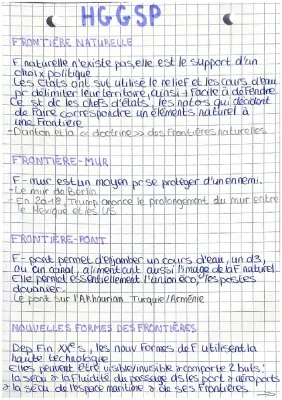 HGGSP
FRONTIÈRE NATURELLE
F naturelle n'existe pas, elle est le support d'un
choix politique
Les États ont sut utilisé le relief et les cours d'eau
pr délimiter leur territoire, ainsi + facile à défendre.
Ce st dc les chefs d'états, les nations qui décident
de faire correspondre un éléments naturel à
une Frontière
-Danton et la « doctrine » des frontières naturelles
FRONTIÈRE-MUR
F-mur est un moyen pr se protéger d'un ennemi.
-Le mur de Berlin
-En 2018, Trump anonce le prolongement du mur entre
le Mexique et les US
FRONTIÈRE-PONT
F-pont permet d'enjamber un cours d'eau, un d3,
ou un canal, alimentant aussi l'image de la F naturel
Elle permet essentiellement l'union éco, les postes
douanier.
Le pont sur l'Akhourian Turquie/Arménie
NOUVELLES FORMES DES FRONTIÈRES
Dep Fin XXe s, les nouv Formes de F utilisent la
haute technologie
Elles peuvent être visible/invisible & comporte 2 buts:
la sécu & la fluidité du passage ds les port & aéroports
& la sécu de l'espace maritime & de ses frontières